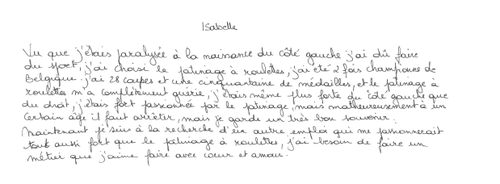 Isabelle
Vu que j'étais paralysée à la naissance du côté gauche j'ai dû faire
du sport, j'ai choisi le patinage à roulettes, j'ai été 2 fois championne de
Belgique. j'ai 28 coupes et une cinquantaine de médailles, et le patinage à
roulettes m'a complètement guérie, j'étais même plus forte du côté gauche que
du droit, j'étais fort passionnée par le patinage, mais malheureusement à un
certain âge il faut arrêter, mais je garde un très bon souvenir.
Maintenant je suis à la recherche d'un autre emploi qui me passionnerait
tout aussi fort que le patinage à roulettes, j'ai besoin de faire un
métier que j'aime faire avec cœur et amour.